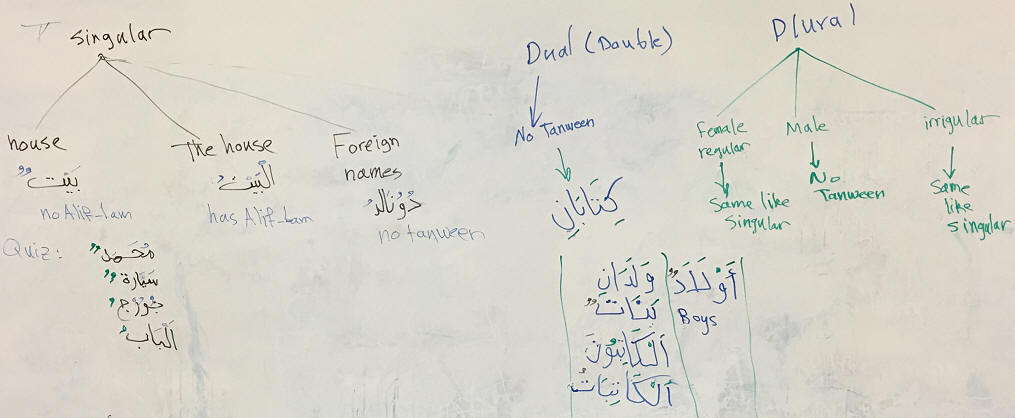 singular
house
بَيْتٌ
no Alif-lam
The house
الْبَيْتُ
has Alif-Lam
Foreign
names
دُونَالدُ
no tanween
Quiz:
مُحَمدٌ
سَيَّارةٌ
جُورْجُ
اَلْبَابُ
Dual (Double)
No Tanween
كِتَابَانِ
وَلَدَانِ
بَنَاتٌ
اَلْكَاتِبُونَ
اَلْكَاتِبَاتُ
أَوْلَادٌ
Boys
Plural
Female
regular
Same like
singular
Male
No
Tanween
irrigular
Same
like
singular